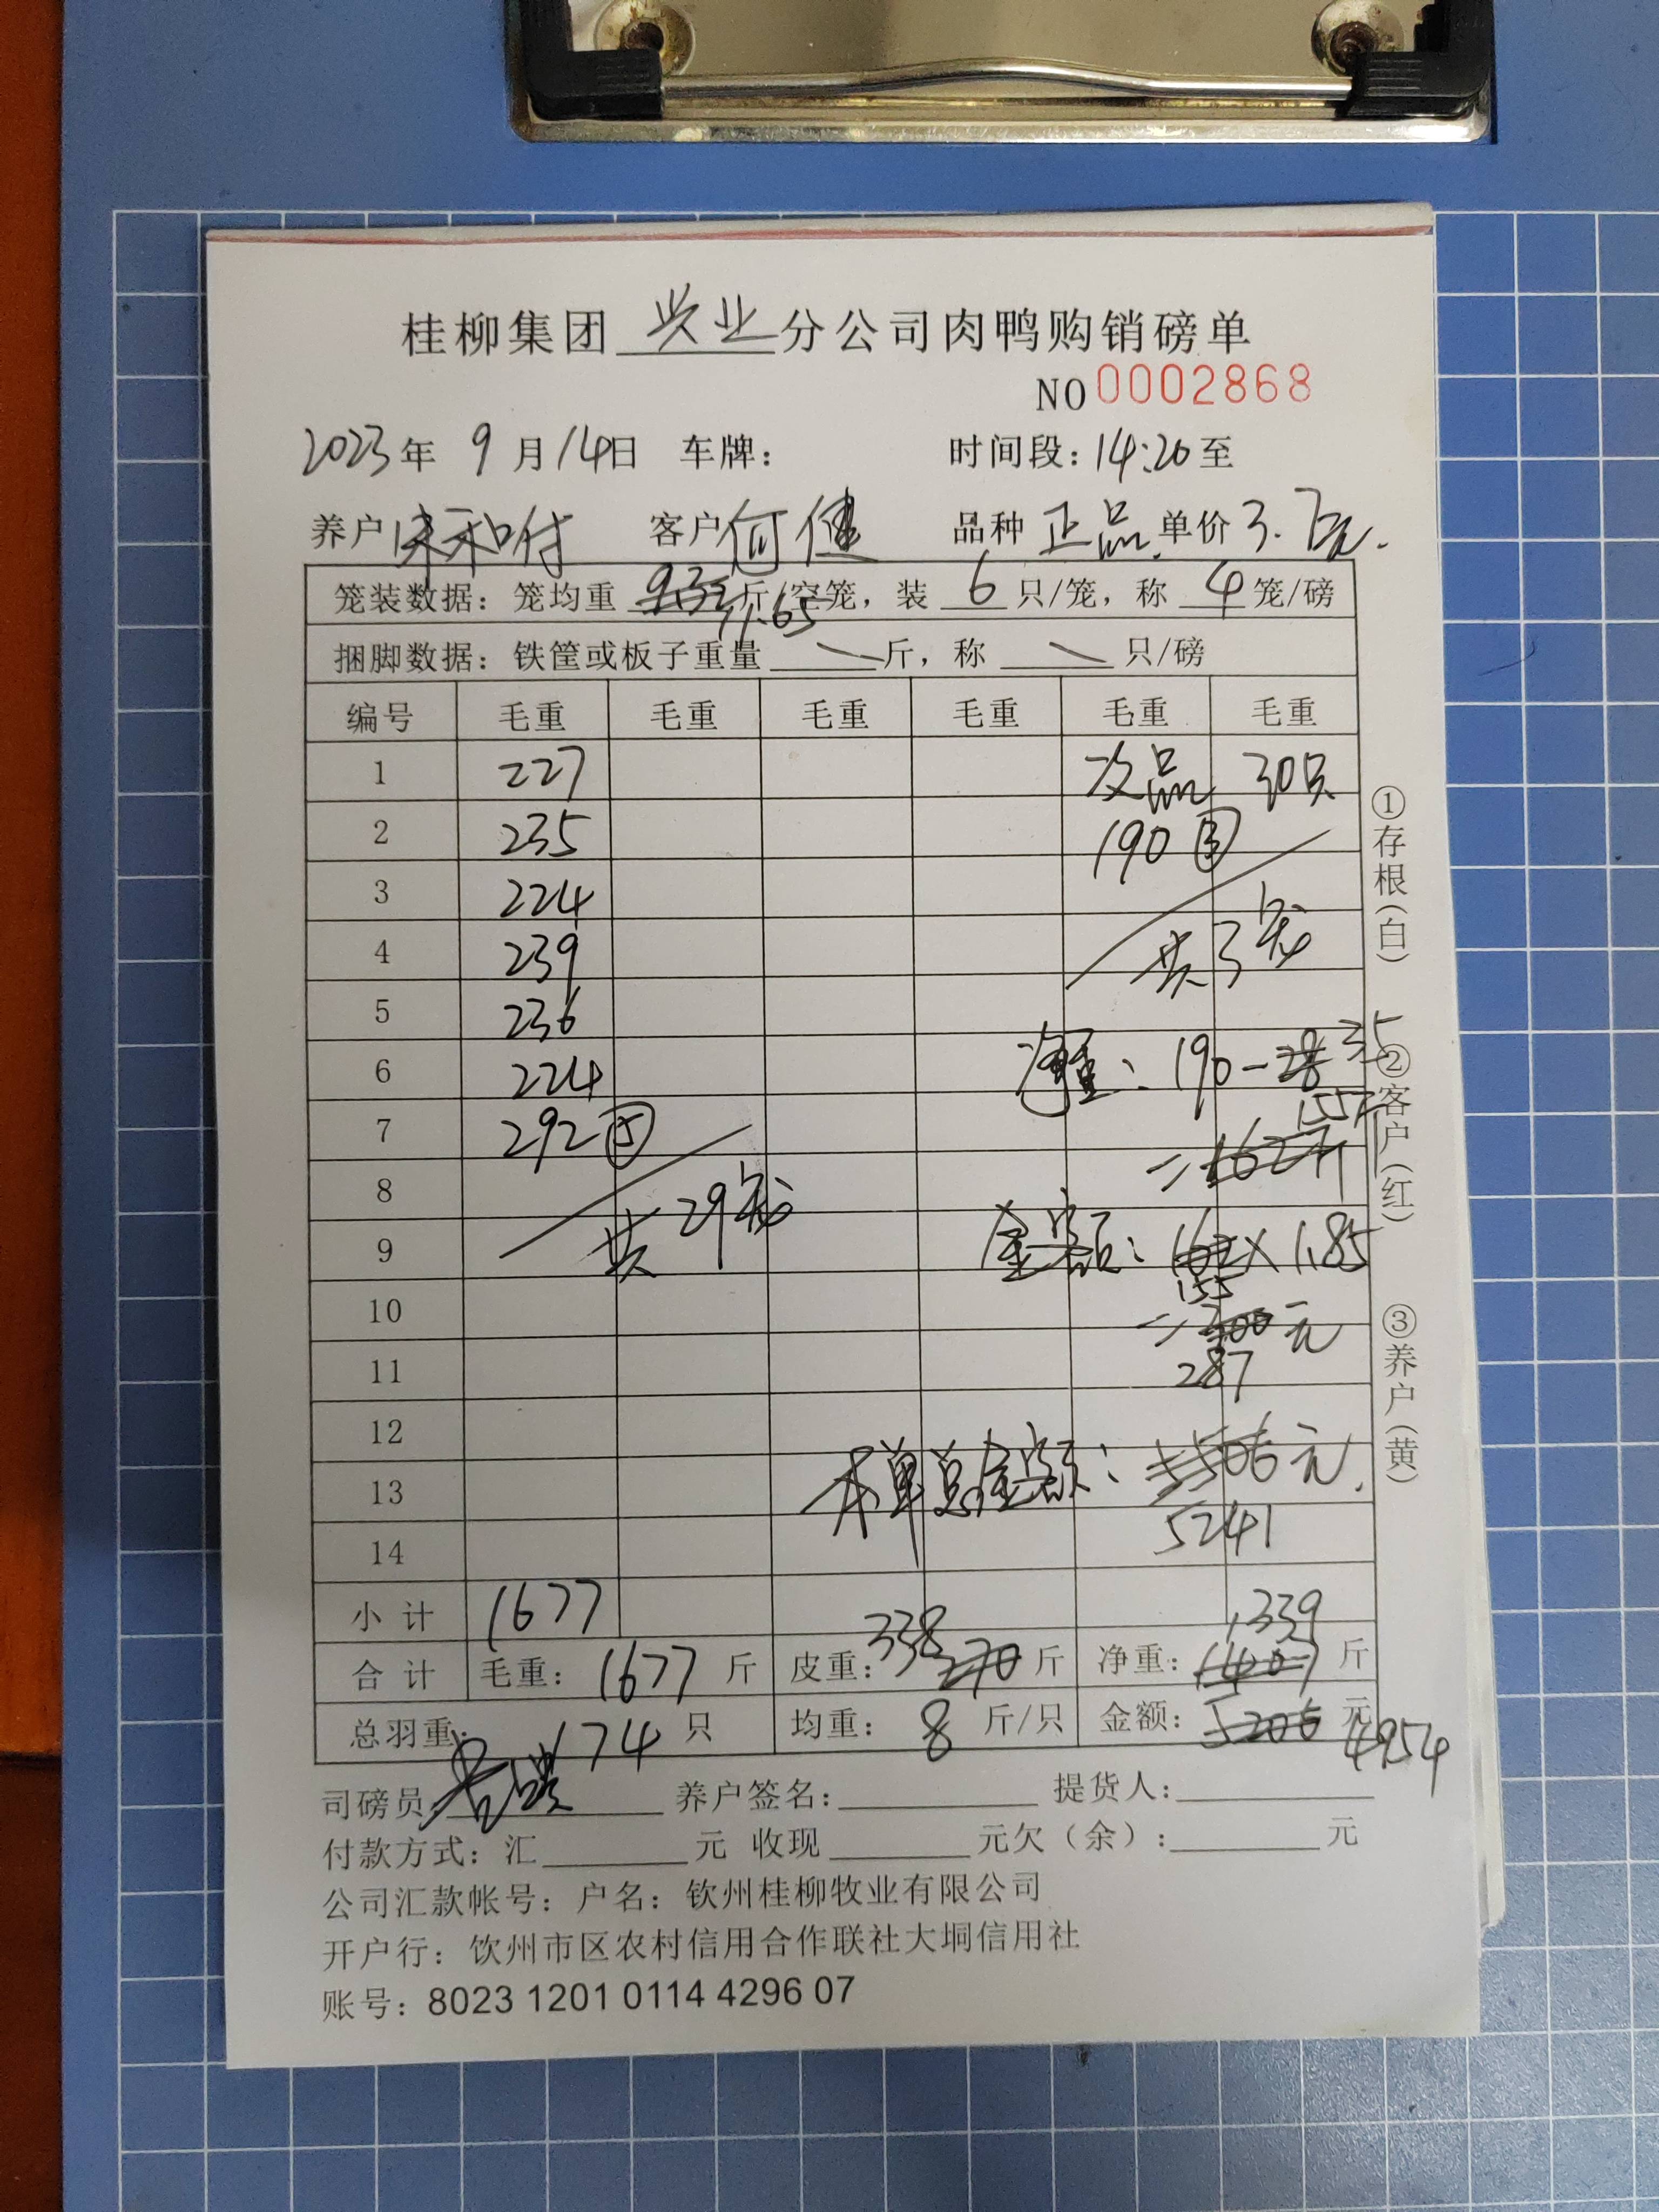 桂柳集团 兴业 分公司肉鸭购销磅单
NO 0002868
2023年 9月14日 车牌: 时间段:14:20至
养户 朱和付 客户 何健 品种 正品 单价 3.7元.
笼装数据: 笼均重 斤/空笼, 装 6 只/笼, 称 4 笼/磅
11.65
捆脚数据: 铁筐或板子重量 斤, 称 只/磅
编号 毛重 毛重 毛重 毛重 毛重 毛重
1 227 次品 30只
2 235 190 ③
3 224
4 239 共3笼
5 236
6 224 净重: 190-28 35
7 292 ⑤ 155斤
8 共29笼 =162斤
9 金额: 162×1.85
155
10 =300元
11 287
12
13 本单总金额: 5506元.
14 5241
小计 1677
合计 毛重: 1677 斤 皮重: 338 270 斤 净重: 1339 1407 斤
总羽重: 174 只 均重: 8 斤/只 金额: 5206 元 4954
司磅员: 养户签名: 提货人:
付款方式: 汇 元 收现 元欠(余): 元
公司汇款帐号: 户名: 钦州桂柳牧业有限公司
开户行: 饮州市区农村信用合作联社大垌信用社
账号: 8023 1201 0114 4296 07
①存根(白)
②客户(红)
③养户(黄)